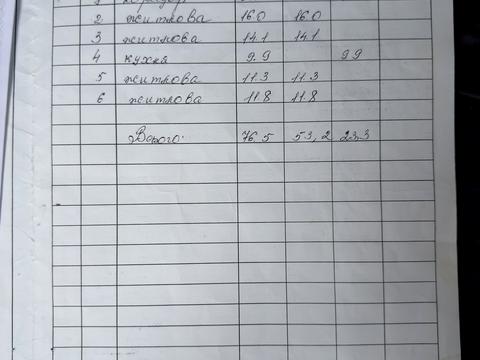 1 коридор
2 житлова 16.0 16.0
3 житлова 14.1 14.1
4 кухня 9.9 9.9
5 житлова 11.3 11.3
6 житлова 11.8 11.8
Всього: 76.5 53,2 23.3